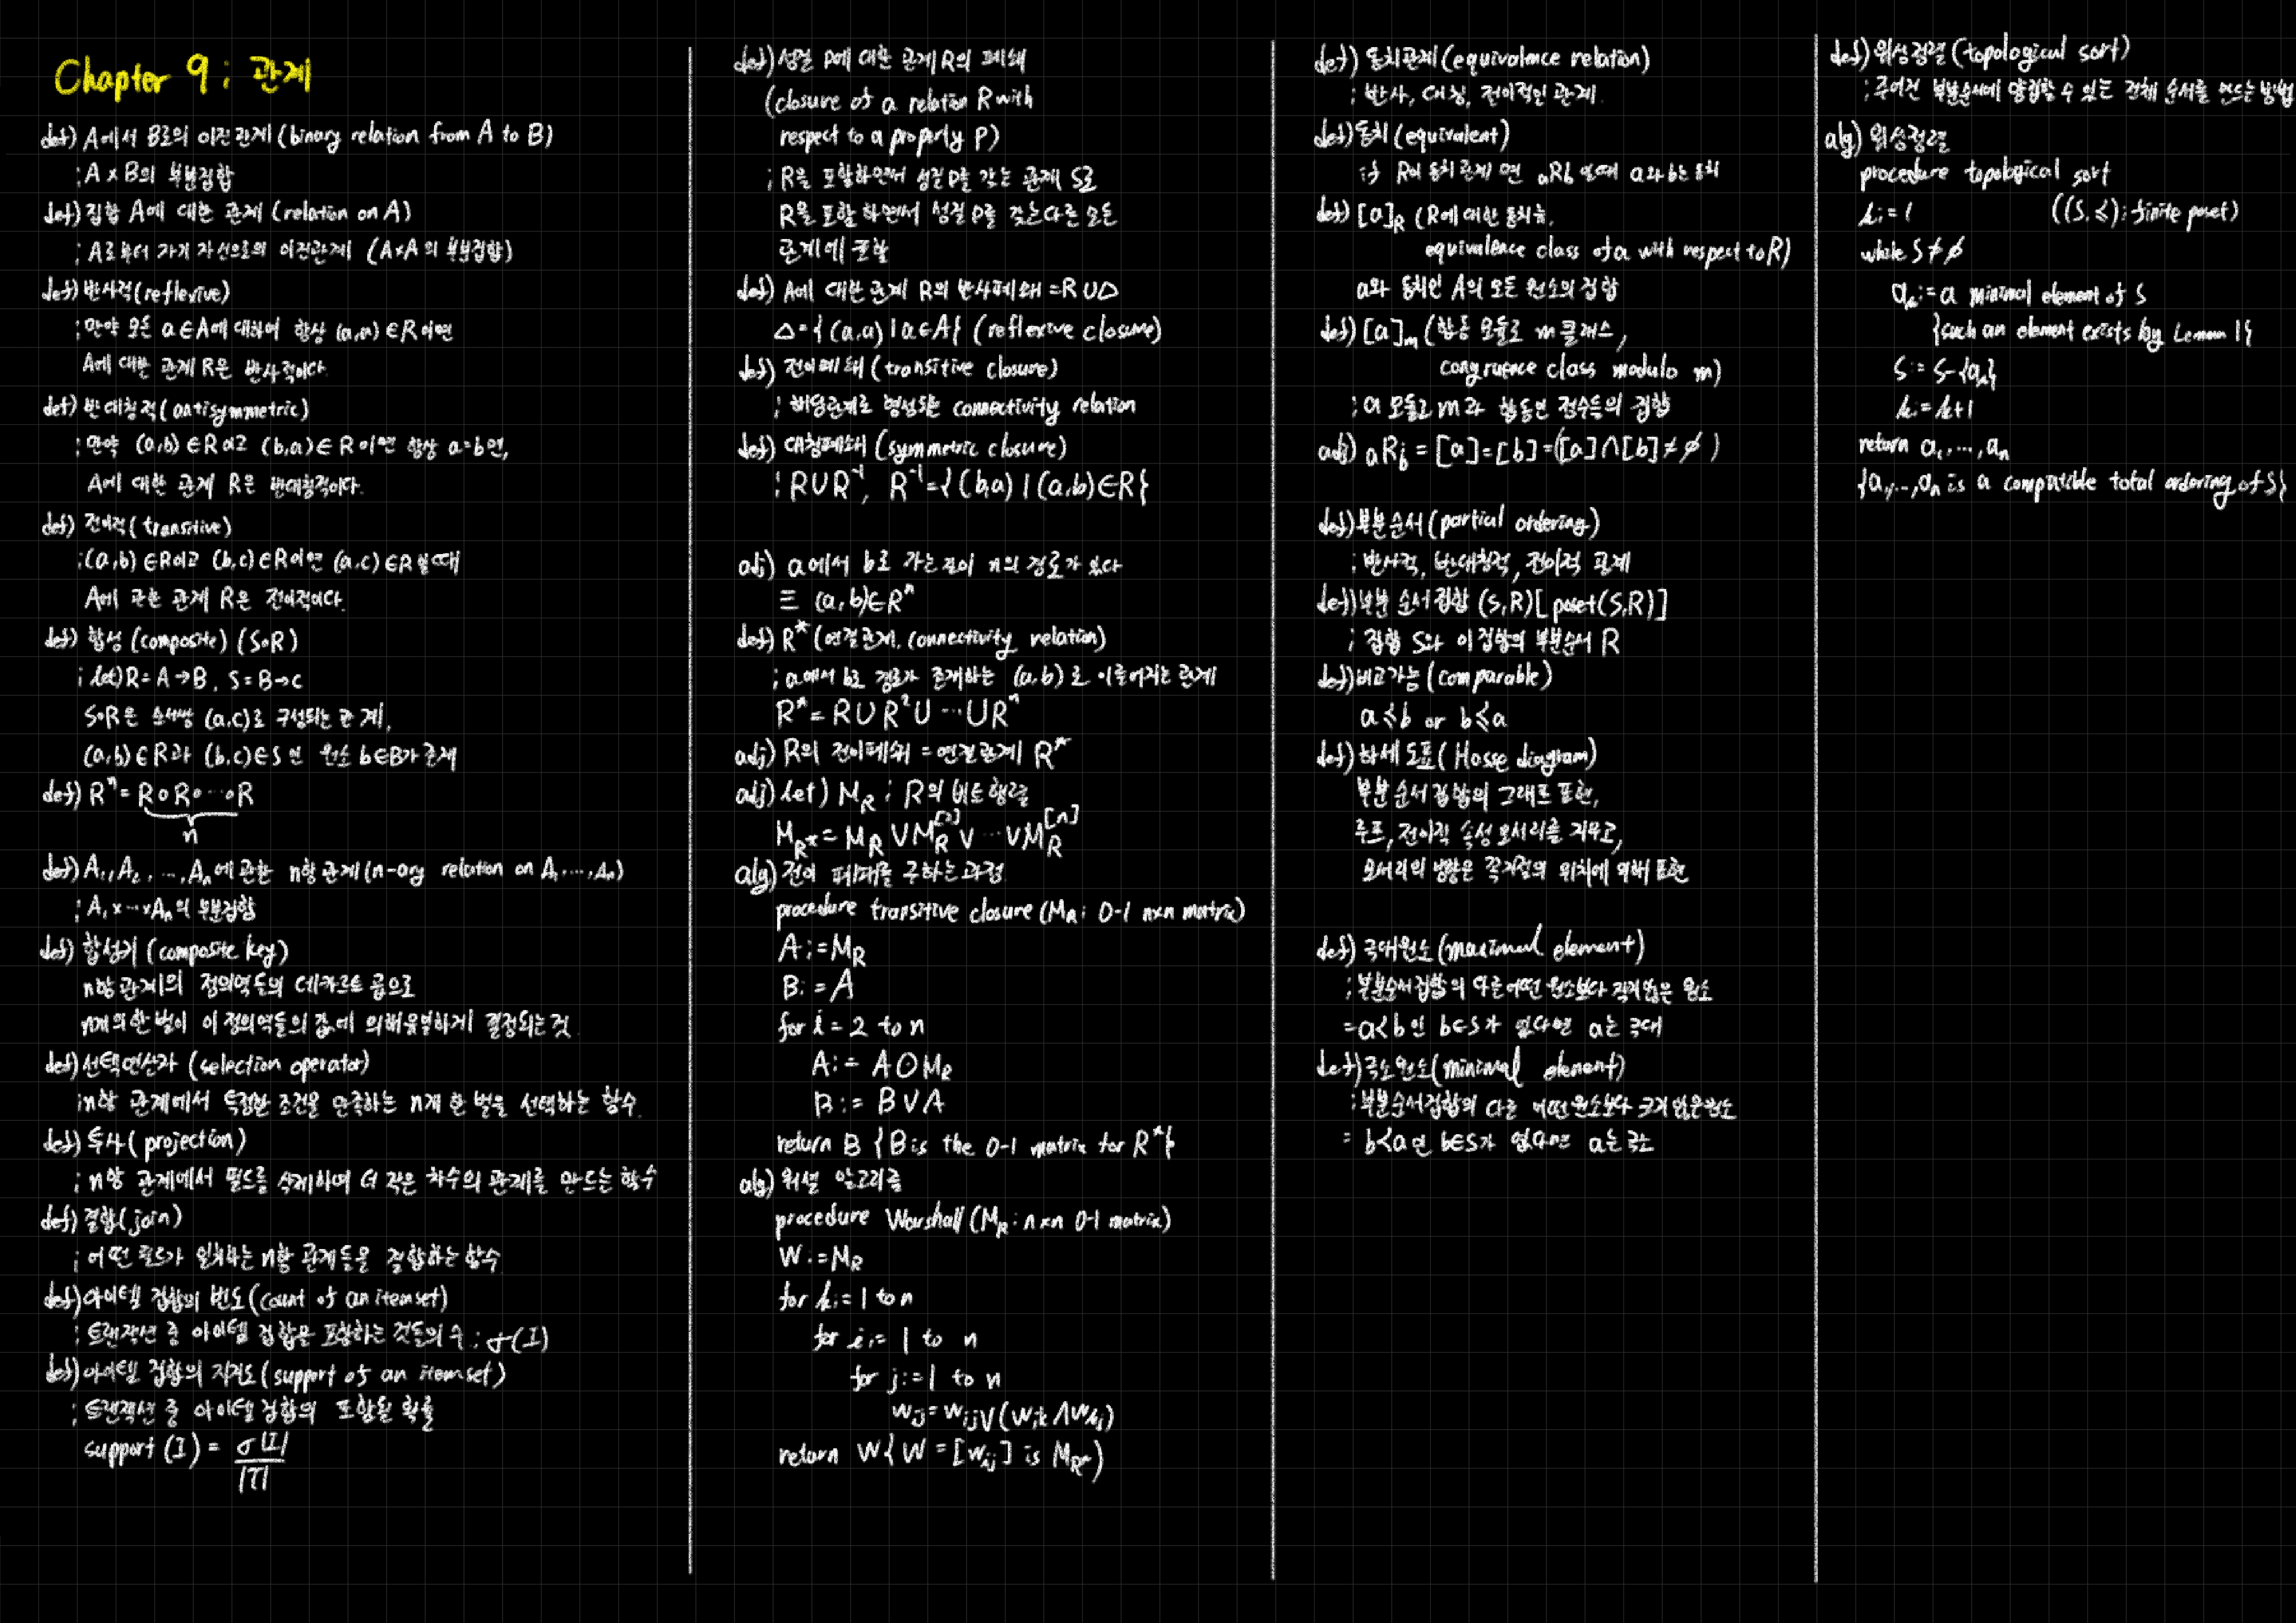 Chapter 9 : 관계
def) A에서 B로의 이진관계 (binary relation from A to B)
; A × B의 부분집합
def) 집합 A에 대한 관계 (relation on A)
; A로부터 자기 자신으로의 이진관계 (A×A의 부분집합)
def) 반사적(reflexive)
; 만약 모든 a∈A에 대하여 항상 (a,a)∈R이면
A에 대한 관계 R은 반사적이다.
def) 반대칭적(antisymmetric)
; 만약 (a,b)∈R이고 (b,a)∈R이면 항상 a=b면,
A에 대한 관계 R은 반대칭적이다.
def) 전이적(transitive)
; (a,b)∈R이고 (b,c)∈R이면 (a,c)∈R일때
A에 관한 관계 R은 전이적이다.
def) 합성 (composite) (S∘R)
; let) R = A→B, S = B→C
S∘R은 순서쌍 (a,c)로 구성되는 관계,
(a,b)∈R과 (b,c)∈S인 원소 b∈B가 존재
def) Rⁿ = R∘R∘⋯∘R
n
def) A₁, A₂, ⋯, Aₙ에 관한 n항 관계 (n-ary relation on A₁, ⋯, Aₙ)
; A₁×⋯×Aₙ의 부분집합
def) 합성키 (composite key)
n항 관계의 정의역들의 데카르트 곱으로
n개의 한 벌이 이 정의역들의 값에 의해 유일하게 결정되는 것.
def) 선택연산자 (selection operator)
; n항 관계에서 특정한 조건을 만족하는 n개 한 벌을 선택하는 함수.
def) 투사 (projection)
; n항 관계에서 필드를 삭제하여 더 작은 차수의 관계를 만드는 함수
def) 결합(join)
; 어떤 필드가 일치하는 n항 관계들을 결합하는 함수
def) 아이템 집합의 빈도 (count of an itemset)
; 트랜잭션 중 아이템 집합을 포함하는 것들의 수 ; σ(I)
def) 아이템 집합의 지지도 (support of an itemset)
; 트랜잭션 중 아이템 집합의 포함될 확률
support (I) = σ(I) / |T|
def) 성질 P에 대한 관계 R의 폐쇄
(closure of a relation R with
respect to a property P)
; R을 포함하면서 성질 P를 갖는 관계 S로
R을 포함 하면서 성질 P를 갖는 다른 모든
관계에 포함
def) A에 대한 관계 R의 반사폐쇄 = R∪Δ
Δ = {(a,a) | a∈A} (reflexive closure)
def) 전이폐쇄 (transitive closure)
; 해당관계로 형성되는 connectivity relation
def) 대칭폐쇄 (symmetric closure)
; R∪R⁻¹, R⁻¹ = {(b,a) | (a,b)∈R}
adj) a에서 b로 가는 길이 n의 경로가 있다
≡ (a,b)∈Rⁿ
def) R* (연결관계, connectivity relation)
; a에서 b로 경로가 존재하는 (a,b)로 이루어지는 관계
R* = R∪R²∪⋯∪Rⁿ
adj) R의 전이폐쇄 = 연결관계 R*
adj) let) M_R ; R의 비트행렬
M_R* = M_R ∨ M_R^[2] ∨ ⋯ ∨ M_R^[n]
alg) 전이 폐쇄를 구하는 과정
procedure transitive closure (M_R : 0-1 n×n matrix)
A := M_R
B := A
for i = 2 to n
A := A⊙M_R
B := B∨A
return B {B is the 0-1 matrix for R*}
alg) 워셜 알고리즘
procedure Warshall (M_R : n×n 0-1 matrix)
W := M_R
for k := 1 to n
for i := 1 to n
for j := 1 to n
w_ij = w_ij ∨ (w_ik ∧ w_kj)
return W {W = [w_ij] is M_R*)
def) 동치관계 (equivalence relation)
; 반사, 대칭, 전이적인 관계.
def) 동치 (equivalent)
; if R이 동치 관계 면 aRb 일때 a와 b는 동치
def) [a]_R (R에 대한 동치류,
equivalence class of a with respect to R)
a와 동치인 A의 모든 원소의 집합
def) [a]_m (합동 모듈로 m 클래스,
congruence class modulo m)
; a 모듈로 m과 합동인 정수들의 집합
adj) aRb = [a]=[b] = ([a]∩[b]≠∅)
def) 부분순서 (partial ordering)
; 반사적, 반대칭적, 전이적 관계
def) 부분 순서 집합 (S,R) [poset(S,R)]
; 집합 S와 이 집합의 부분순서 R
def) 비교가능 (comparable)
a≼b or b≼a
def) 하세 도표 (Hasse diagram)
부분 순서 집합의 그래프 표현,
루프, 전이적 속성 모서리를 지우고,
모서리의 방향은 꼭지점의 위치에 의해 표현
def) 극대원소 (maximal element)
; 부분순서집합의 다른 어떤 원소보다 작지 않은 원소
= a<b인 b∈S가 없다면 a는 극대
def) 극소원소(minimal element)
; 부분순서집합의 다른 어떤 원소보다 크지 않은 원소
= b<a인 b∈S가 없다면 a는 극소
def) 위상정렬 (topological sort)
; 주어진 부분순서에 양립할 수 있는 전체 순서를 만드는 방법
alg) 위상정렬
procedure topological sort
k := 1 ((S, ≼) ; finite poset)
while S≠∅
a_k := a minimal element of S
{such an element exists by Lemma 1}
S := S-{a_k}
k := k+1
return a₁, ⋯, aₙ
{a₁, ⋯, aₙ is a compatible total ordering of S}